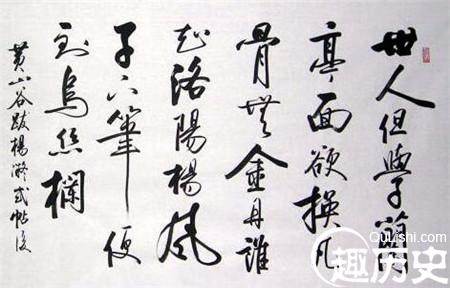 世人但學蘭
亭面欲換凡
骨無金丹誰
知洛陽楊風
子下筆便
到烏絲欄
黄山谷跋楊凝式帖後
QuLishi.com
趣历史